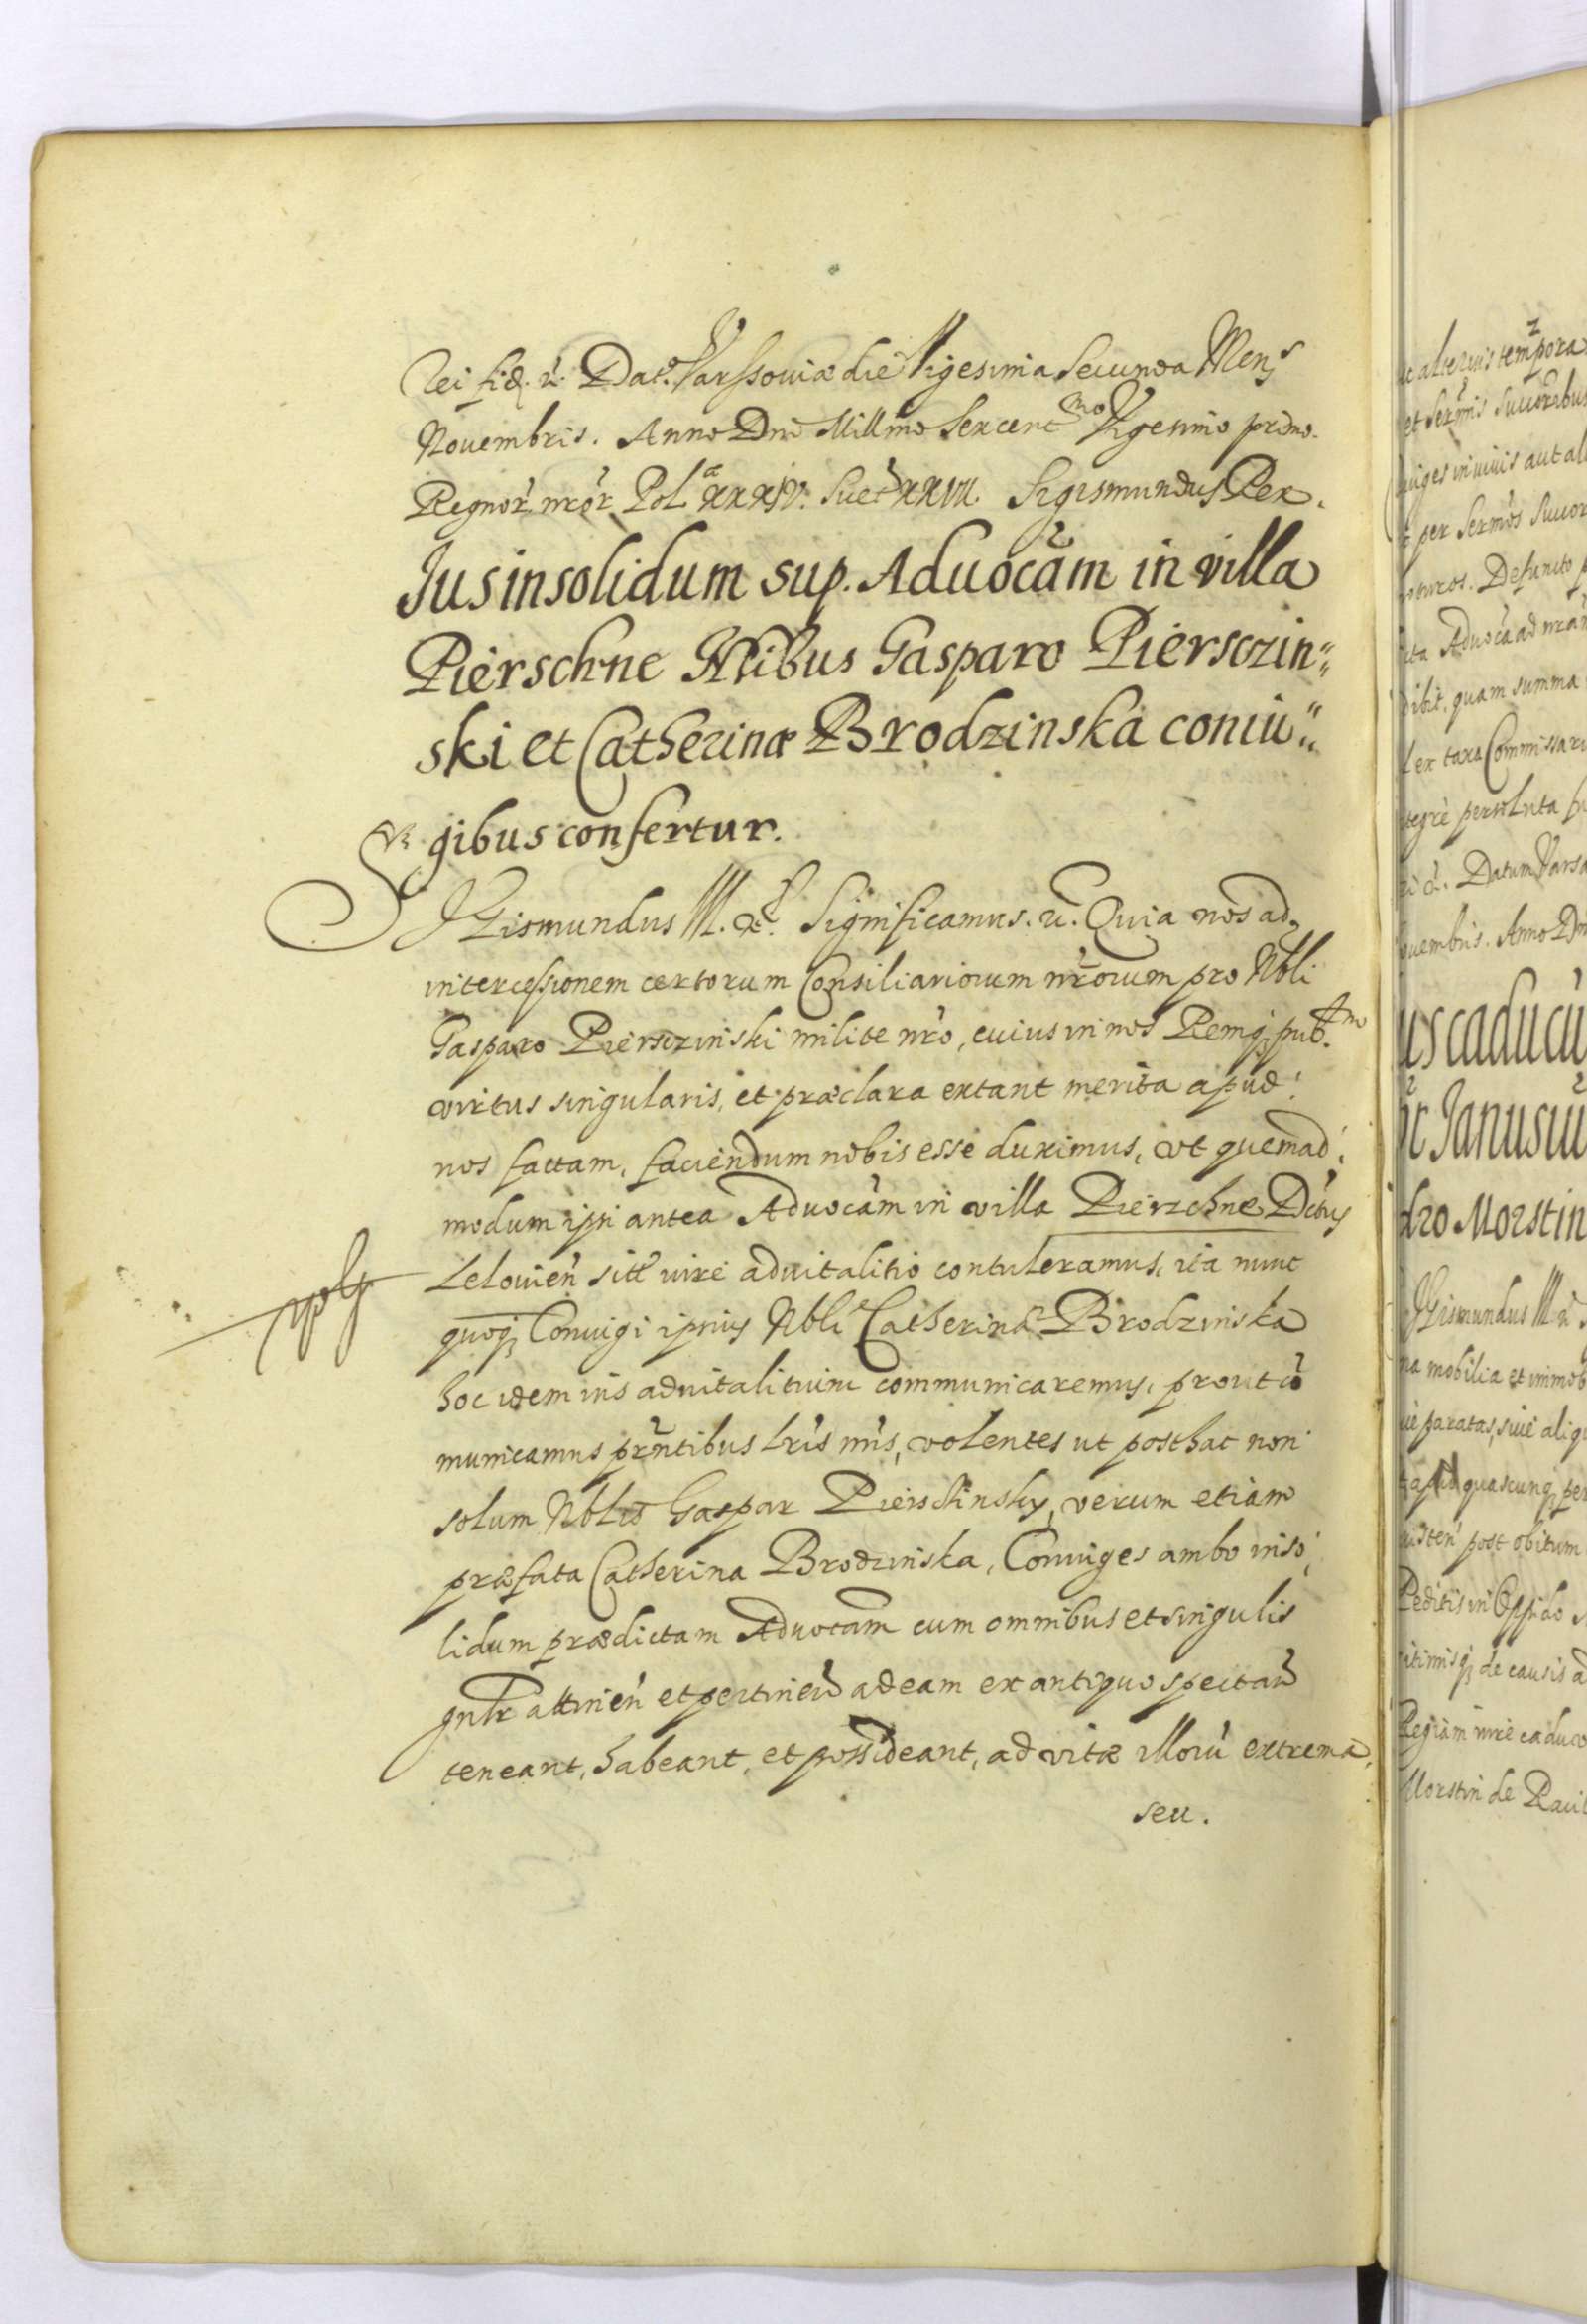 Rei fid. &. Dat. Varssoviæ die Vigesima Secunda Mens
Novembris. Anno Dni Millmo Sexcent mo Vigesimo primo.
Regnor nror Pol. a XXXIV. Suet XXVII. Sigismundus Rex.
Jus in solidum sup. Aduocãm in villa
Pierschne Nlibus Gasparo Piersczin
ski et Catherinæ Brodzinska coniu
gibus confertur.
SIGismundus III. &. Significamus. &. Quia nos ad
intercessionem certorum Consiliariorum nrorum pro Nbli
Gasparo Piersczinski milite nro, cuius in nos Remq; pub.
virtus singularis, et præclara extant merita apud
nos factam, faciendum nobis esse duximus, vt quemad
modum ipsi antea Aduocãm in villa Pierzchne Dctus
Lelovien sitt iure aduitalitio contuleramus, ita nunc
quoq; Coniugi ipsius Nbli Catherinæ Brodzinska
hoc idem ius aduitalitium communicaremus, prout cõ
municamus prntibus lris nris, volentes ut posthac non
solum Nblis Gaspar Pierschinsky, verum etiam
præfata Catherina Brodzinska, Coniuges ambo inso
lidum prædictam Aduocãm cum omnibus et singulis
gnlr attinen et pertinen ad eam ex antiquo spectan
teneant, habeant, et possideant, ad vitæ illorũ extrema,
seu.
ac alterius tempora
et Sermis Succoribus
iuges in uiuis aut al
per Sermos Succor
Defuncto
Aduocã ad nram
dibit, quam summa
lex taxa Commissari
tegre persoluta fu
Datum Varsa
ouembris. Anno Dni
us caducũ
Janusiu
dro Morstin
SIGismundus III &
na mobilia et immob
ue paratas, siue aliq
quascunq; per
post obitum
Peditis in Oppido
itimisq; de causis ad
Regiam iure caduco
Morstin de Raci